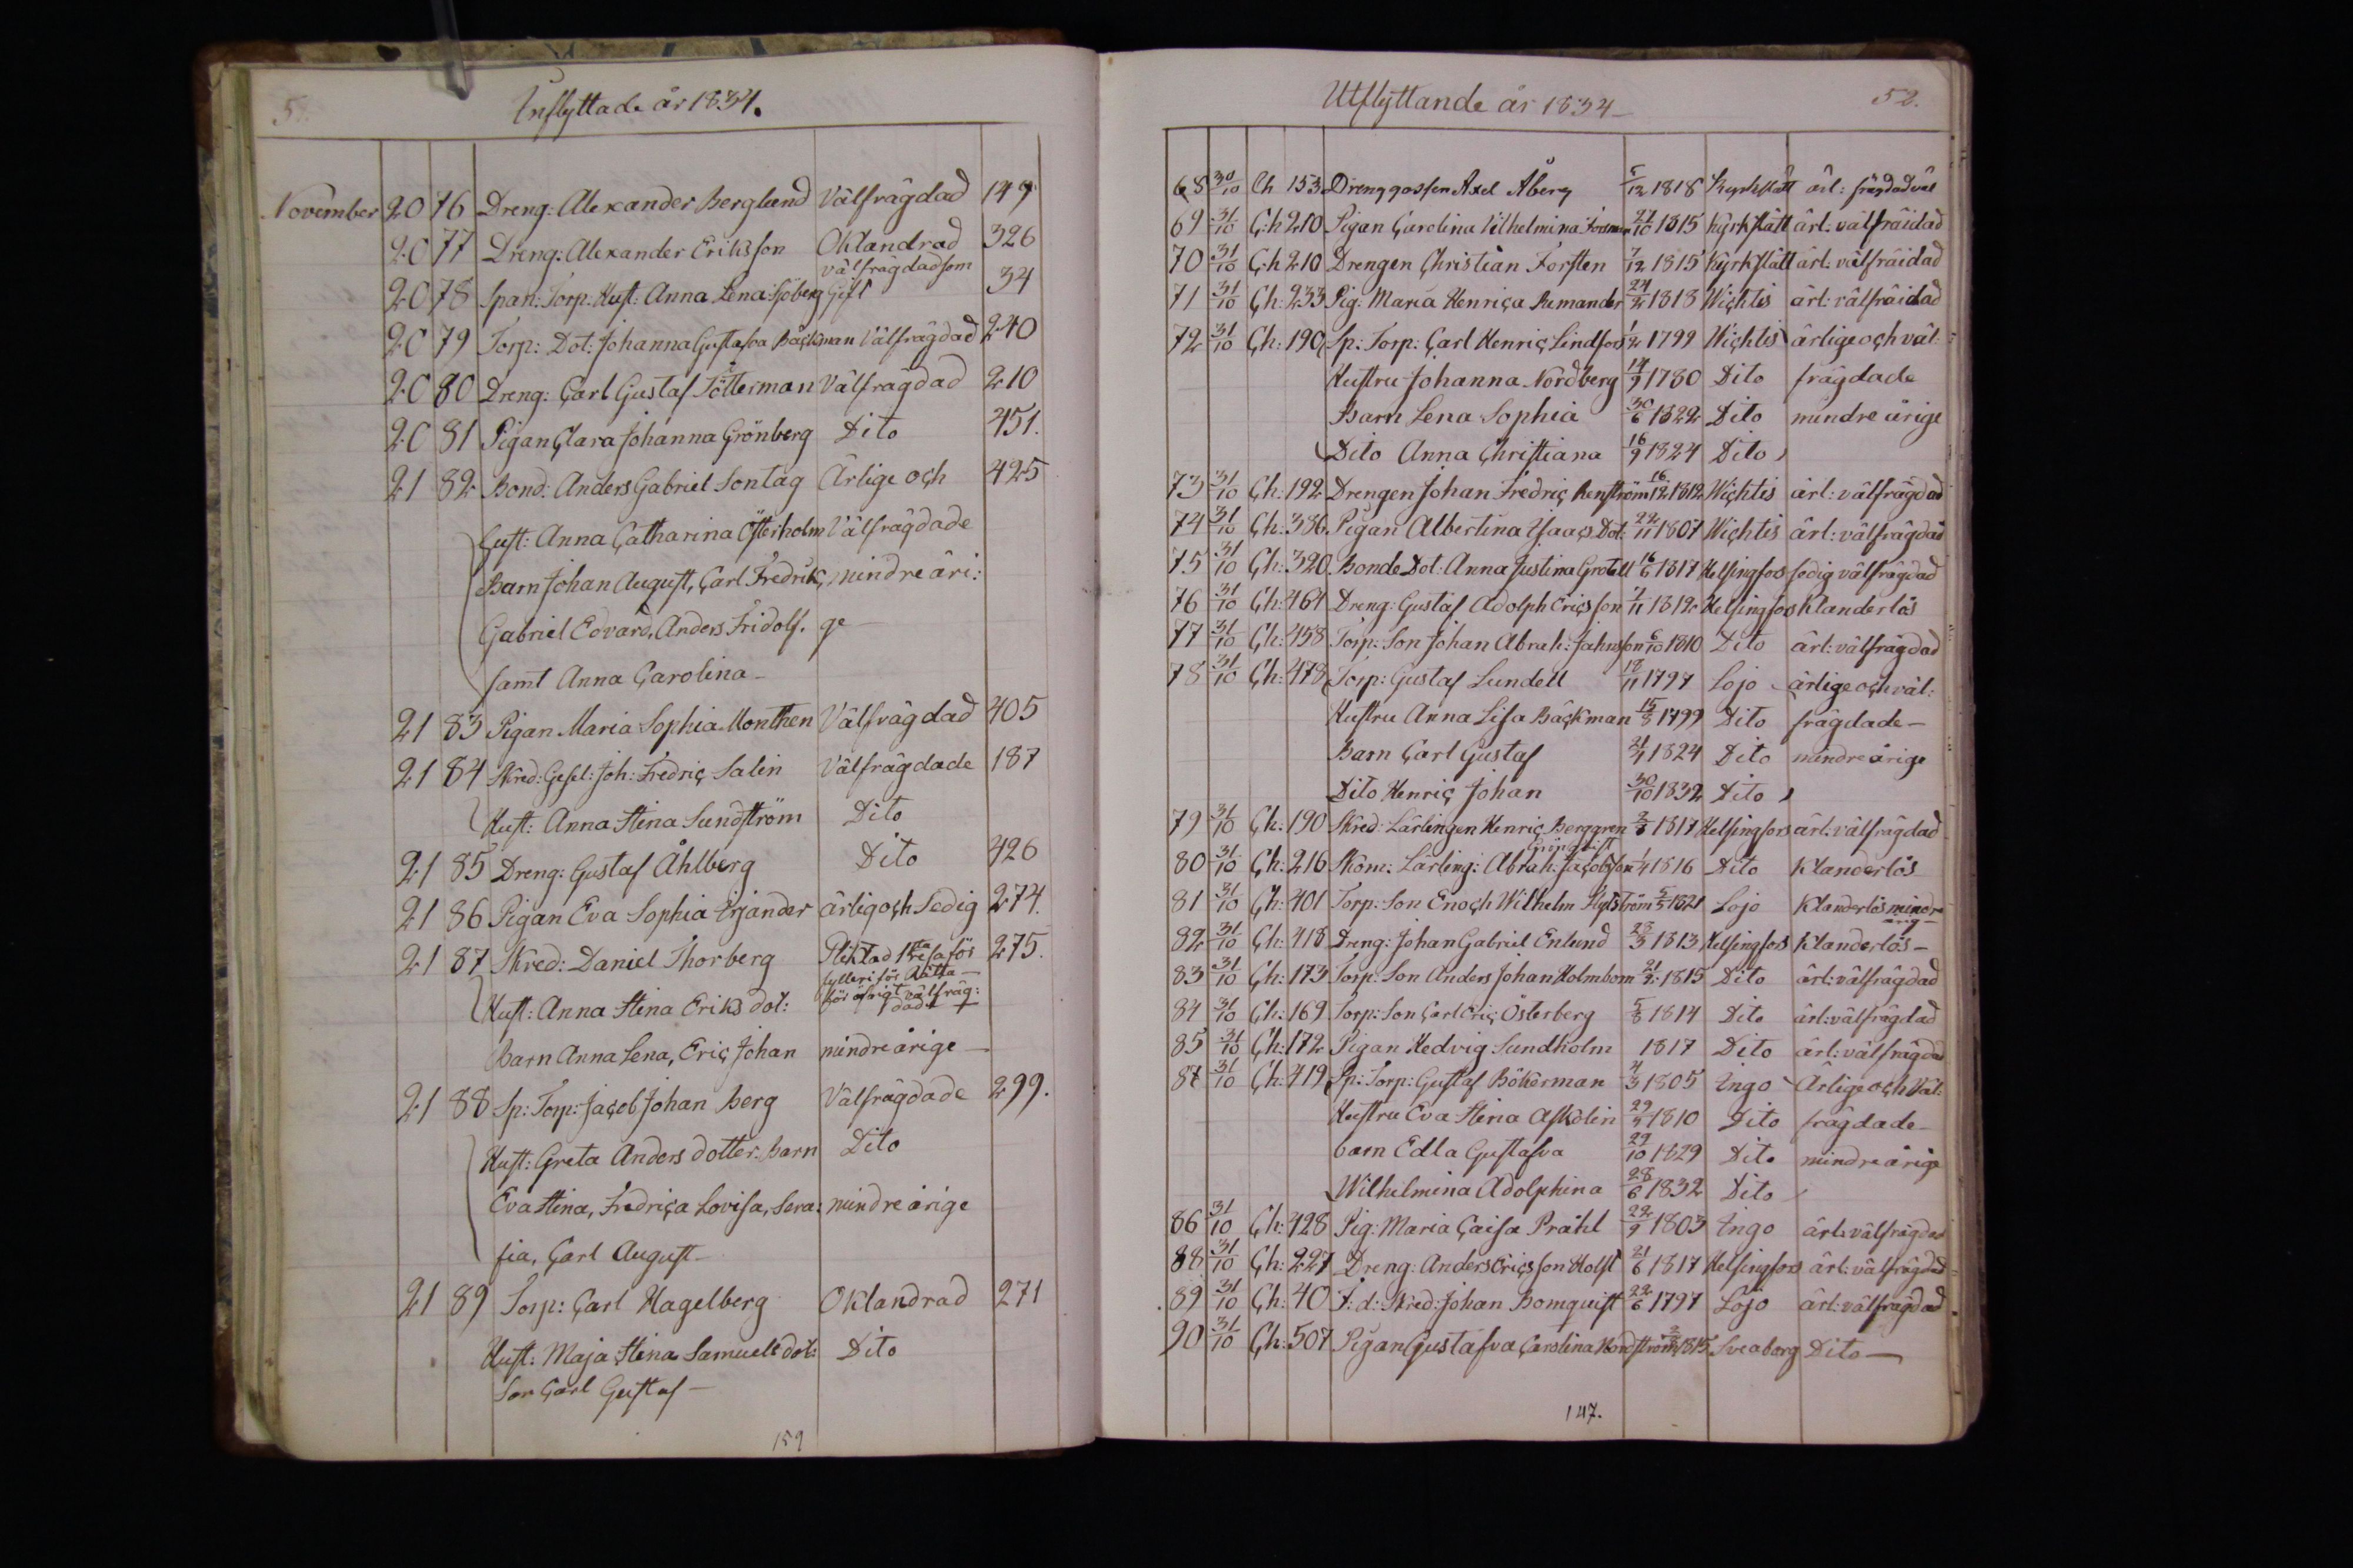 51.
Inflyttade år 1834.
November 20 76 Dreng: Alexander Berglund Välfrägdad 149
20 77 Dreng: Alexander Eriksson Oklandrad 326
20 78 Span: Torp: Hust: Anna Lena Sjöberg välfrägdad som Gift 34
20 79 Torp: Dot: Johanna Gustafva Bäckman Välfrägdad 240
20 80 Dreng: Carl Gustaf Tötterman Välfrägdad 210
20 81 Pigan Clara Johanna Grönberg Dito 451.
21 82 Bond: Anders Gabriel Sontag Ärlige och 425
Hust: Anna Catharina Österholm Välfrägdade
Barn Johan August, Carl Fredrik, mindre äri:
Gabriel Edvard, Anders Fridolf. ge
samt Anna Carolina
21 83 Pigan Maria Sophia Monthen Välfrägdad 405
21 84 Skred: Gesel: Joh: Fredric Salin Välfrägdade 187
Hust: Anna Stina Sundström Dito
21 85 Dreng: Gustaf Åhlberg Dito 426
21 86 Pigan Eva Sophia Erjander ärlig och Sedig 274.
21 87 Skred: Daniel Thorberg Pliktad för 275.
fylleri för
Hust: Anna Stina Eriks dot: för öfrigt välfräg: dad
Barn Anna Lena, Eric Johan mindre årige
21 88 Sp: Torp: Jacob Johan Berg Välfrägdade 299.
Hust: Greta Anders dotter. Barn Dito
Eva Stina, Fredrica Lovisa, Sera: mindre årige
fia, Carl August
21 89 Torp: Carl Hagelberg Oklandrad 271
Hust: Maja Stina Samuels dot: Dito
Son Carl Gustaf
159
Utflyttande år 1834
52.
68 30/10 Ch 153 Drenggossen Axel Åberg 5/12 1818 Kyrkslätt ärl: frägdad väl
69 31/10 Ch 210 Pigan Carolina Vilhelmina 27/10 1815 Kyrkslätt ärl: välfräidad
70 31/10 Ch 210 Drengen Christian Forsten 7/12 1815 Kyrkslätt ärl: välfräidad
71 31/10 Ch: 233 Pig: Maria Henrica Remander 24/2 1813 Wichtis ärl: välfräidad
72 31/10 Ch: 190 Sp: Torp: Carl Henric Lindfors 1/2 1799 Wichtis ärlige och väl:
Hustru Johanna Nordberg 14/9 1780 Dito frägdade
Barn Lena Sophia 30/6 1822 Dito mindre ärige
Dito Anna Christiana 16/9 1824 Dito
73 31/10 Ch: 192 Drengen Johan Fredric Renström 16/12 1812 Wichtis ärl: välfrägdad
74 31/10 Ch: 386. Pigan Albertina Isaacs Dot: 22/11 1807 Wichtis ärl: välfrägdad
75 31/10 Ch: 320 Bonde Dot: Anna Justina Grotell 16/6 1817 Helsingfors sedig välfrägdad
76 31/10 Ch: 464 Dreng: Gustaf Adolph Ericsson 7/11 1812 Helsingfors Klanderlös
77 31/10 Ch: 458 Torp: Son Johan Abrah: Jahnsson 6/10 1810 Dito ärl: välfrägdad
78 31/10 Ch: 478 Torp: Gustaf Lundell 18/11 1797 Lojo ärlige och väl:
Hustru Anna Lisa Bäckman 15/3 1799 Dito frägdade
Barn Carl Gustaf 21/4 1824 Dito mindre årige
Dito Henric Johan 30/10 1832 Dito
79 31/10 Ch: 190 Skred: Lärlingen Henric Berggren 2/8 1817 Helsingfors ärl: välfrägdad
Grönqvist
80 31/10 Ch: 216 Skom: Lärling: Abrah: Jacobsson 1/4 1816 Dito Klanderlös
81 31/10 Ch: 401 Torp: Son Enoch Wilhelm 5/5 1821 Lojo Klanderlös mindre
årig
82 31/10 Ch: 418 Dreng: Johan Gabriel Enlund 28/3 1813 Helsingfors Klanderlös
83 31/10 Ch: 173 Torp: Son Anders Johan Holmbom 21/2 1815 Dito ärl: välfrägdad
84 31/10 Ch: 169 Torp: Son Carl Eric Österberg 5/8 1814 Dito ärl: välfrägdad
85 31/10 Ch: 172 Pigan Hedvig Sundholm 1817 Dito ärl: välfrägdad
87 31/10 Ch: 419 Sp: Torp: Gustaf Bökerman 4/3 1805 Ingo Ärlige och Väl:
Hustru Eva Stina Askolin 29/4 1810 Dito frägdade
barn Edla Gustafva 29/10 1829 Dito mindre årige
Wilhelmina Adolphina 28/6 1832 Dito
86 31/10 Ch: 428 Pig: Maria Caisa Pråhl 22/9 1803 Ingo ärl: välfrägdad
88 31/10 Ch: 227 Dreng: Anders Ericsson Holst 21/6 1817 Helsingfors ärl: välfrägdad
89 31/10 Ch: 40 F: d: Skred: Johan Bomquist 22/6 1797 Lojo ärl: välfrägdad
90 31/10 Ch: 507 Pigan Gustafva Carolina Nordström 1815 Sveaborg Dito
147.